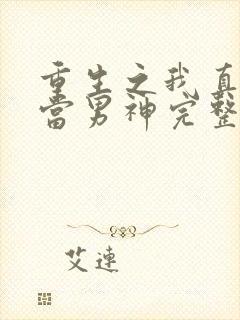 重生之我真
当男神完整
艾连